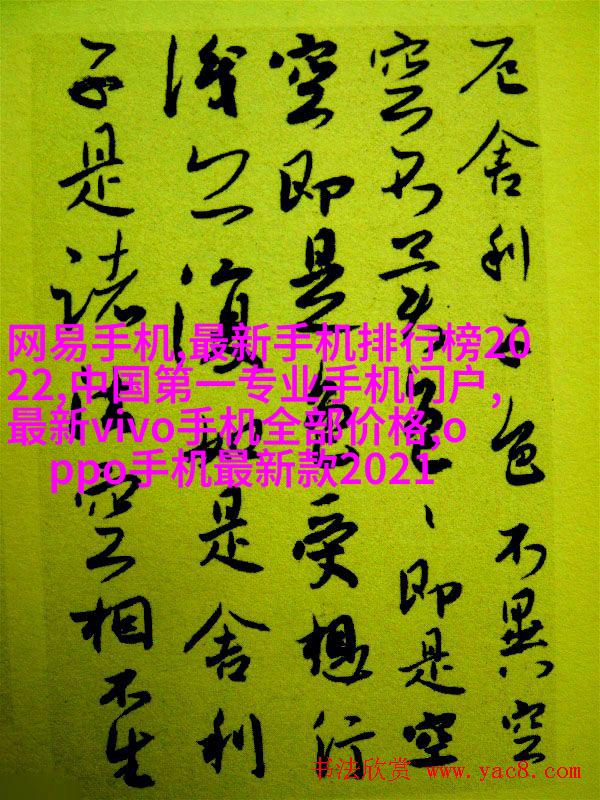 厄舍利子色不異空
空不異色、即是空
空即是色受想行
識亦復如是舍利
子是諸法空相不生
网易手机,最新手机排行榜20
22,中国第一专业手机门户,
最新vivo手机全部价格,o
ppo手机最新款2021
书法欣赏 www.yac8.com